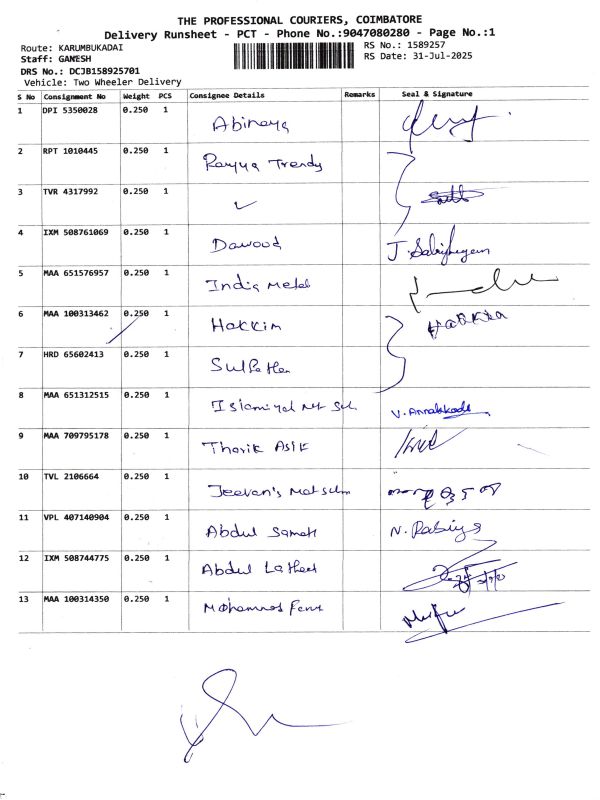 THE PROFESSIONAL COURIERS, COIMBATORE
Delivery Runsheet - PCT - Phone No.:9047080280 - Page No.:1
Route: KARUMBUKADAI RS No.: 1589257
Staff: GANESH RS Date: 31-Jul-2025
DRS No.: DCJB158925701
Vehicle: Two Wheeler Delivery
S No Consignment No Weight PCS Consignee Details Remarks Seal & Signature
1 DPI 5350028 0.250 1 Abinaya
2 RPT 1010445 0.250 1 Trendy
3 TVR 4317992 0.250 1 ✓
4 IXM 508761069 0.250 1 Dawood
5 MAA 651576957 0.250 1 India Metal
6 MAA 100313462 0.250 1 Hakkim
7 HRD 65602413 0.250 1
8 MAA 651312515 0.250 1
9 MAA 709795178 0.250 1 Thorik Asik
10 TVL 2106664 0.250 1 Jeevan's
11 VPL 407140904 0.250 1 Abdul N. Rabiya
12 IXM 508744775 0.250 1 Abdul
13 MAA 100314350 0.250 1